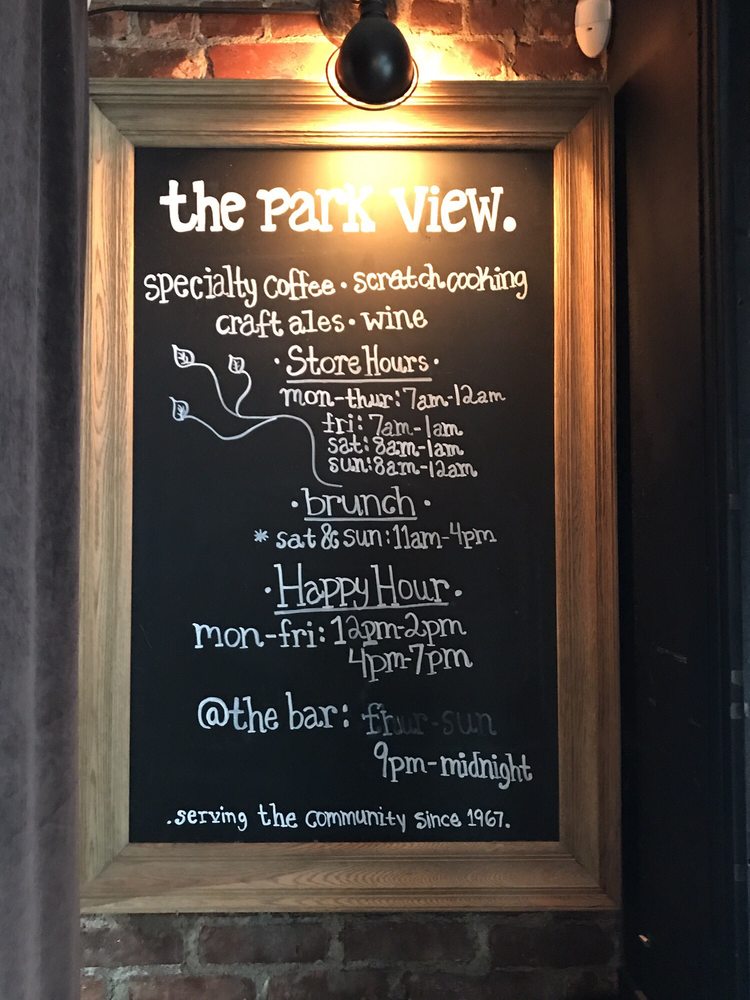 the Park View.
specialty coffee · scratch cooking
craft ales · wine
· Store Hours ·
mon-thur: 7am-12am
fri: 7am-1am
sat: 8am-1am
sun: 8am-12am
· brunch ·
* sat & sun: 11am-4pm
· Happy Hour ·
mon-fri: 12pm-2pm
4pm-7pm
@the bar:
9pm-midnight
.serving the community since 1967.